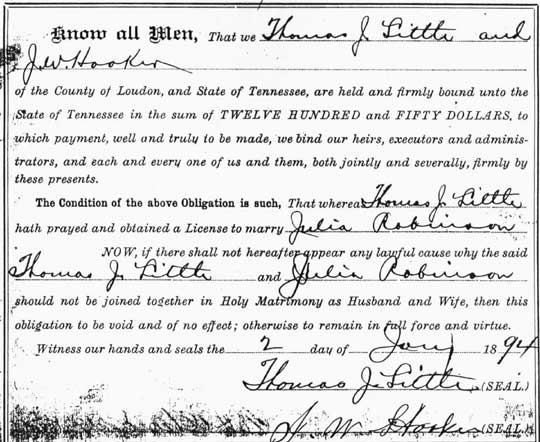 Know all Men, That we Thomas J. Little and
J. W. Hooker
of the County of Loudon, and State of Tennessee, are held and firmly bound unto the
State of Tennessee in the sum of TWELVE HUNDRED and FIFTY DOLLARS, to
which payment, well and truly to be made, we bind our heirs, executors and adminis-
trators, and each and every one of us and them, both jointly and severally, firmly by
these presents.
The Condition of the above Obligation is such, That whereas Thomas J. Little
hath prayed and obtained a License to marry Julia Robinson
NOW, if there shall not hereafter appear any lawful cause why the said
Thomas J. Little and Julia Robinson
should not be joined together in Holy Matrimony as Husband and Wife, then this
obligation to be void and of no effect; otherwise to remain in full force and virtue.
Witness our hands and seals the 2 day of Jany 1894
Thomas J. Little (SEAL.)
J. W. Hooker (SEAL.)